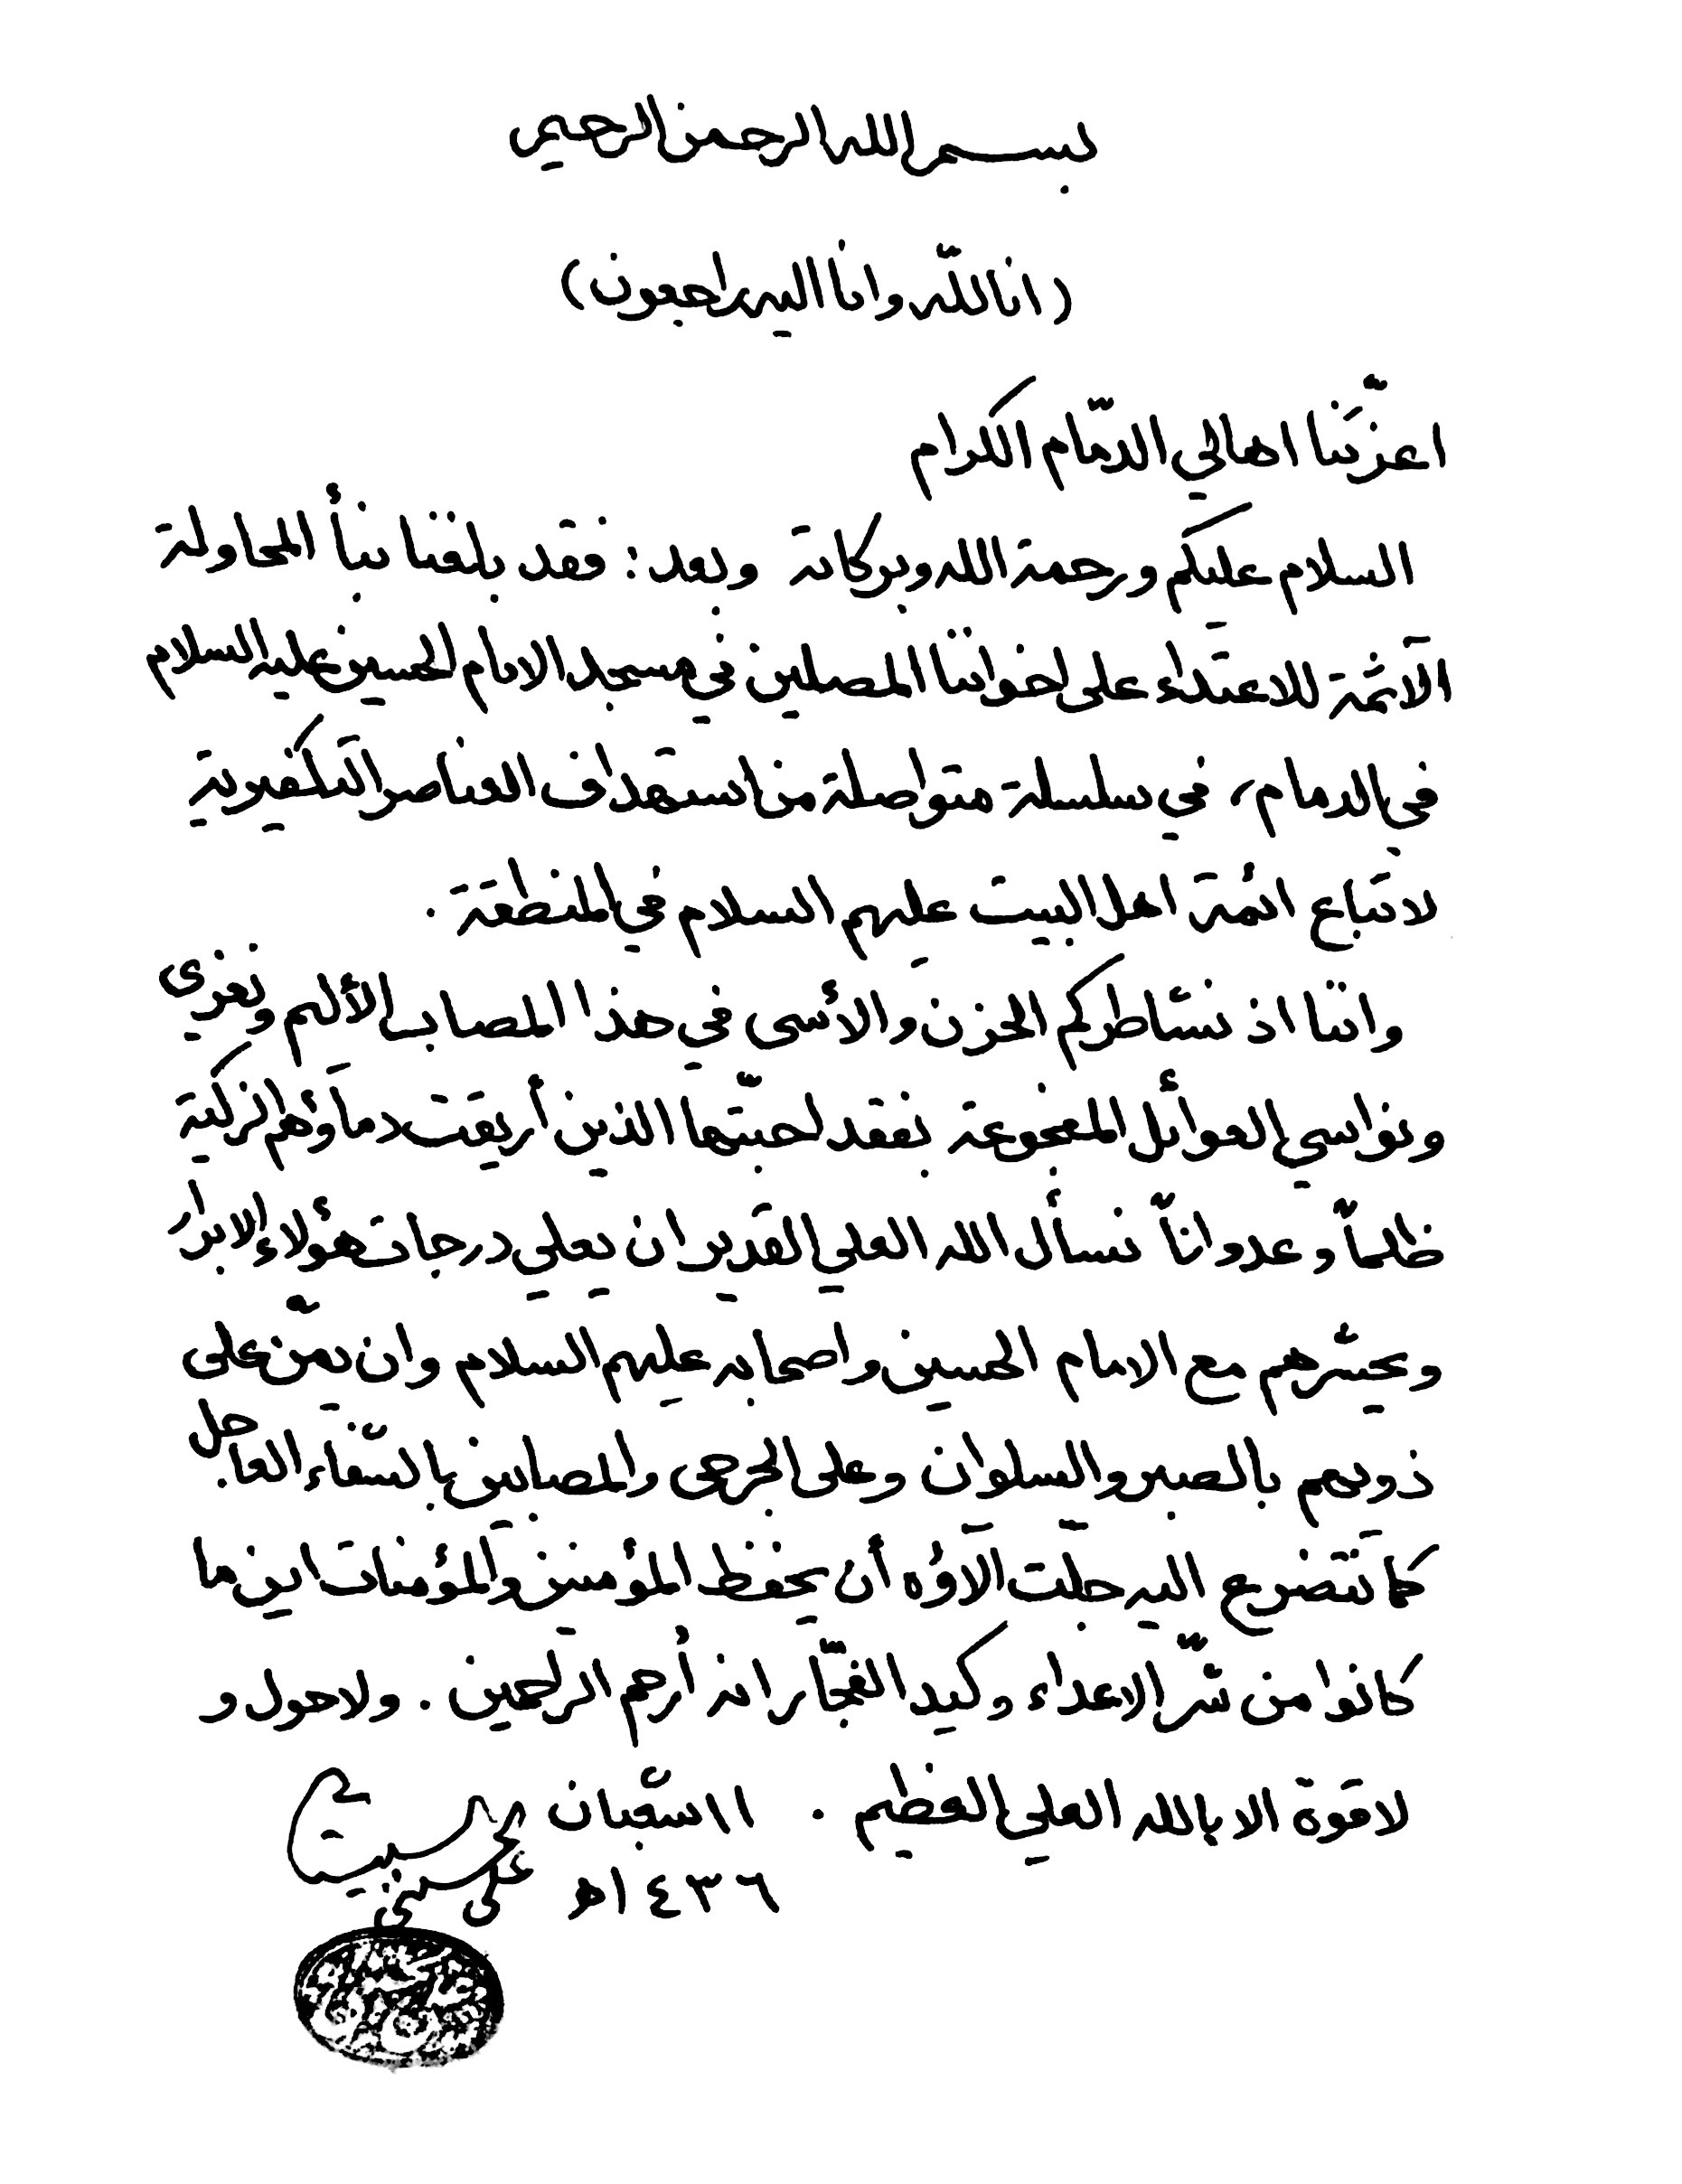 بسم الله الرحمن الرحيم
(انا للّه وانا اليه راجعون)
اعزّتنا اهالي الدمّام الكرام
السلام عليكم ورحمة الله وبركاته وبعد: فقد بلغنا نبأ المحاولة
الآثمة للاعتداء على اخواننا المصلين في مسجد الامام الحسين عليه السلام
في الدمام، في سلسلة متواصلة من استهداف العناصر التكفيرية
لاتباع ائمة اهل البيت عليهم السلام في المنطقة .
واننا اذ نشاطركم الحزن والأسى في هذا المصاب الأليم ونعزي
ونواسي العوائل المفجوعة بفقد احبّتها الذين أريقت دماؤهم الزكية
ظلماً وعدواناً نسأل الله العلي القدير ان يعلي درجات هؤلاء الابرار
ويحشرهم مع الامام الحسين واصحابه عليهم السلام وان يمنّ على
ذويهم بالصبر والسلوان وعلى الجرحى والمصابين بالشفاء العاجل
كما نتضرع اليه جلت آلاؤه أن يحفظ المؤمنين والمؤمنات اينما
كانوا من شرّ الاعداء وكيد الفجّار انه أرحم الراحمين . ولا حول و
لا قوة الا بالله العلي العظيم . ١١ شعبان
١٤٣٦ه